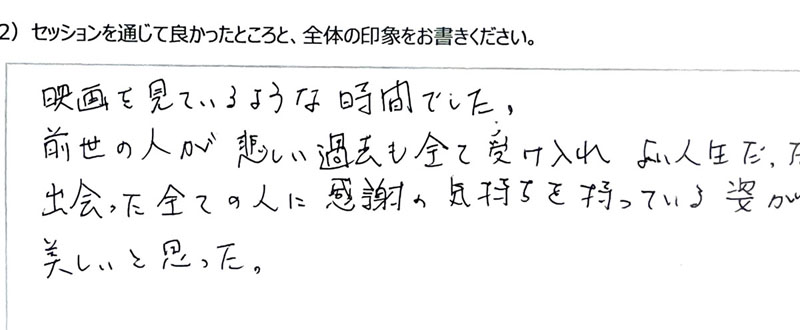 2）セッションを通じて良かったところと、全体の印象をお書きください。
映画を見ているような時間でした。
前世の人が悲しい過去も全て受け入れ よい人生だ、た
出会った全ての人に感謝の気持ちを持っている姿が
美しいと思った。